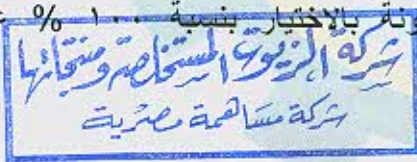 ونة بالاختيار بنسبة ١٠٠ %
شركة الزيوت المستخلصة ومنتجاتها
شركة مساهمة مصرية